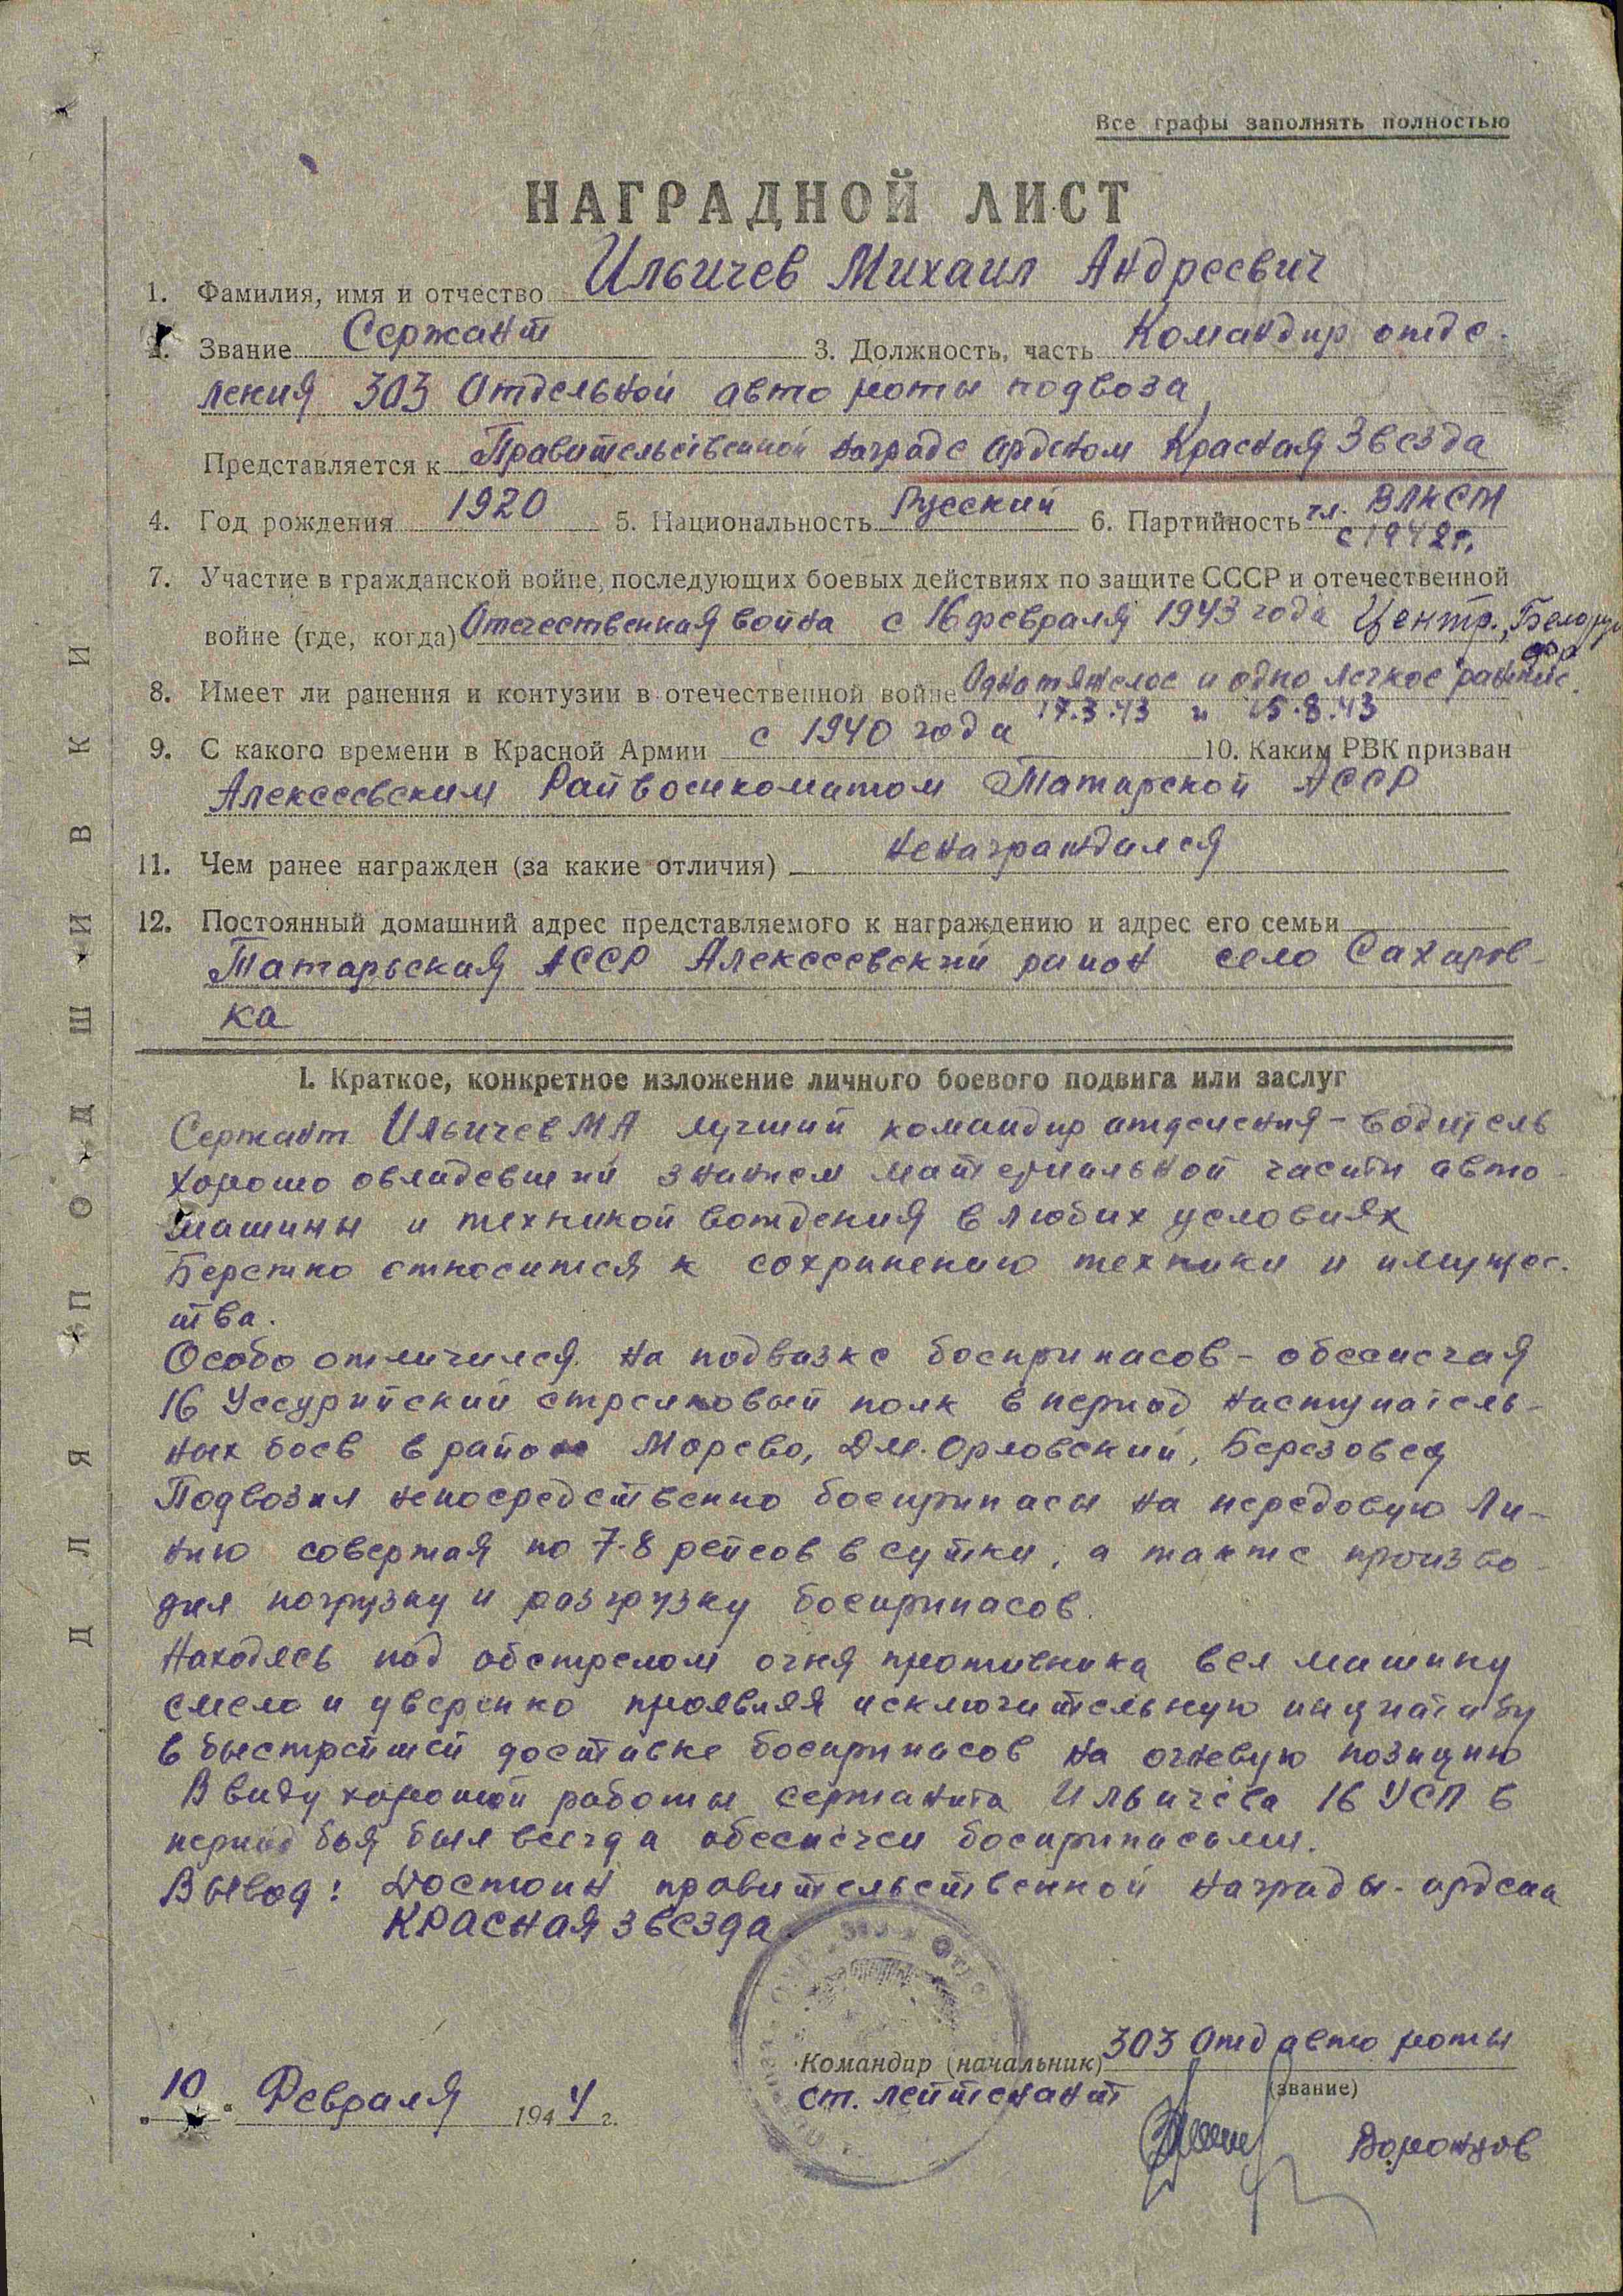 Все графы заполнять полностью
НАГРАДНОЙ ЛИСТ
1. Фамилия, имя и отчество Ильичев Михаил Андреевич
2. Звание Сержант 3. Должность, часть Командир отде-
ления 303 Отдельной авто роты подвоза
Представляется к Правительственной награде орденом Красная Звезда
4. Год рождения 1920 5. Национальность Русский 6. Партийность чл. ВЛКСМ
с 1942 г.
7. Участие в гражданской войне, последующих боевых действиях по защите СССР и отечественной
войне (где, когда) Отечественная война с 16 февраля 1943 года Центр., Белорус
фр
8. Имеет ли ранения и контузии в отечественной войне Одно тяжелое и одно легкое ранение.
17.3.43 и 15.8.43
9. С какого времени в Красной Армии с 1940 года 10. Каким РВК призван
Алексеевским Райвоенкоматом Татарской АССР
11. Чем ранее награжден (за какие отличия) ненаграждался
12. Постоянный домашний адрес представляемого к награждению и адрес его семьи
Татарьская АССР Алексеевский район село Сахаров-
ка
I. Краткое, конкретное изложение личного боевого подвига или заслуг
Сержант Ильичев МА лучший командир отделения - водитель
хорошо овладевший знанием материальной части авто
машины и техникой вождения в любих условиях
Бережно относится к сохранению техники и имущес.
тва.
Особо отличился на подвозке боеприпасов - обеспечая
16 Уссурийский стрелковый полк в период наступатель-
ных боев в районе Морево, Дм. Орловский, Березовец
Подвозил непосредственно боеприпасы на передовую ли-
нию совершая по 7-8 рейсов в сутки, а также произво-
дил погрузку и разгрузку боеприпасов.
Находясь под обстрелом огня противника вел машину
смело и уверенно проявляя исключительную инциативу
в быстрейшей доставке боеприпасов на огневую позицию
Ввиду хорошей работы сержанта Ильичева 16 УСП в
период боя был всегда обеспечен боеприпасами.
Вывод: Достоин правительственной награды - ордена
КРАСНАЯ ЗВЕЗДА.
Командир (начальник) 303 Отд авто роты
(звание)
ст. лейтенант
Воронцов
"10" Февраля 1944 г.
ДЛЯ ПОДШИВКИ